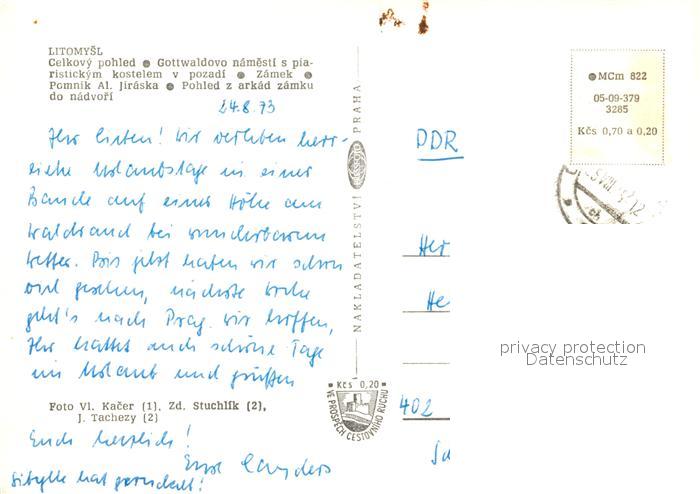 LITOMYŠL
Celkový pohled ● Gottwaldovo náměstí s pia-
ristickým kostelem v pozadí ● Zámek ●
Pomník Al. Jiráska ● Pohled z arkád zámku
do nádvoří
24.8.73
Ihr Lieben! Wir verleben herr-
liche Urlaubstage in einer
Baude auf einer Höhe am
Waldrand bei wunderbarem
Wetter. Bis jetzt haben wir schon
viel gesehen, nächste Woche
geht's nach Prag. Wir hoffen,
Ihr hattet auch schöne Tage
im Urlaub und grüßen
Foto Vl. Kačer (1), Zd. Stuchlík (2),
J. Tachezy (2)
Euch herzlich!
Eure
Sibylle hat
NAKLADATELSTVÍ
PRAHA
Kčs 0,20
VE PROSPĚCH CESTOVNÍHO RUCHU
MCm 822
05-09-379
3285
Kčs 0,70 a 0,20
DDR
Her
He
402
privacy protection
Datenschutz